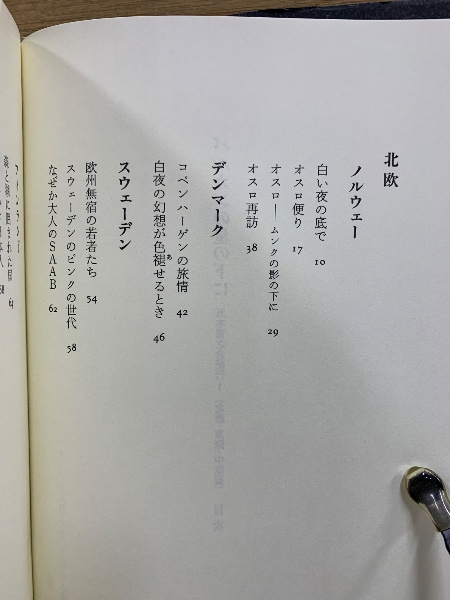 北欧
ノルウェー
白い夜の底で 10
オスロ便り 17
オスロ――ムンクの影の下に 29
オスロ再訪 38
デンマーク
コペンハーゲンの旅情 42
白夜の幻想が色褪せるとき 46
あ
スウェーデン
欧州無宿の若者たち 54
スウェーデンのピンクの世代 58
なぜか大人のSAAB 62
フィンランド
森と湖に囲まれた国 64